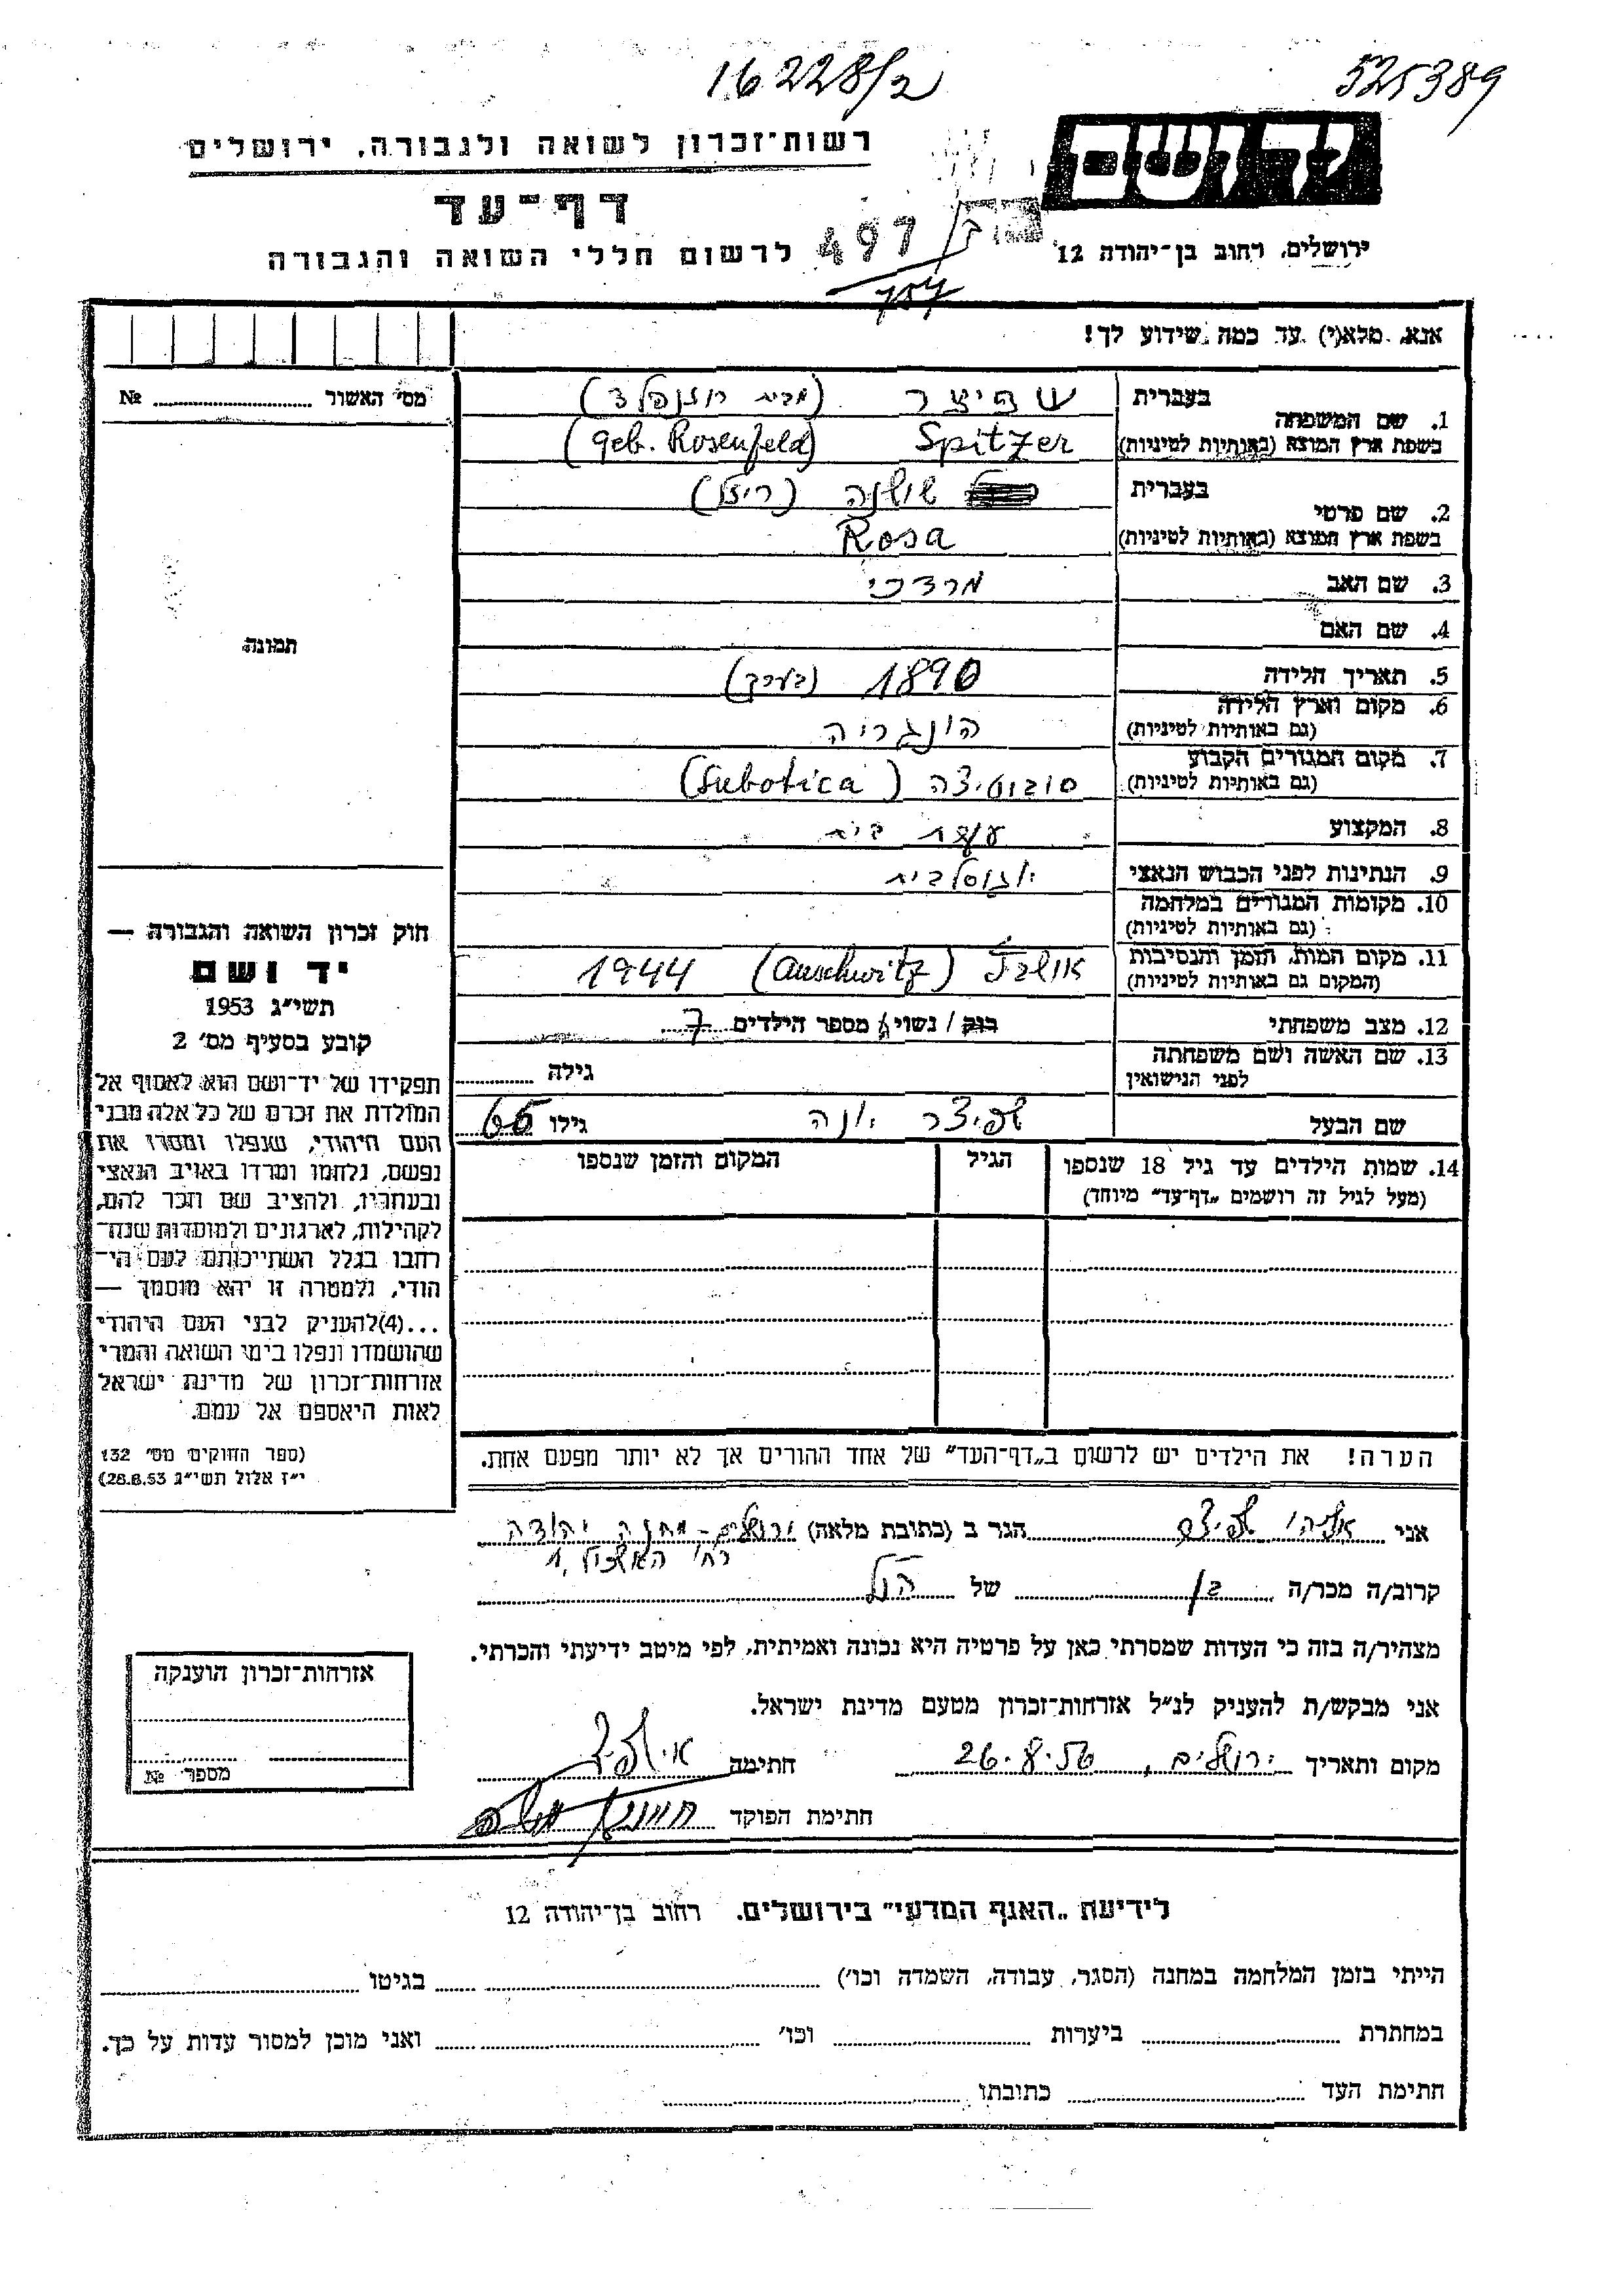 16228/2
525389
רשות־זכרון לשואה ולגבורה, ירושלים
יד ושם
דף־עד
497
לרשום חללי השואה והגבורה
ירושלים, רחוב בן־יהודה 12
אנא, מלא(י) עד כמה שידוע לך!
מס׳ האשור № ............
1. שם המשפחה
בעברית
שפיצר (מבית רוזנפלד)
בשפת ארץ המוצא (באותיות לטיניות)
Spitzer (geb. Rosenfeld)
2. שם פרטי
בעברית
שושנה (רייזל)
בשפת ארץ המוצא (באותיות לטיניות)
Rosa
3. שם האב
מרדכי
4. שם האם
5. תאריך הלידה
1890 (בערך)
6. מקום וארץ הלידה
(גם באותיות לטיניות)
הונגריה
7. מקום המגורים הקבוע
(גם באותיות לטיניות)
סובוטיצה (Subotica)
8. המקצוע
עקרת בית
9. הנתינות לפני הכבוש הנאצי
יוגוסלבית
10. מקומות המגורים במלחמה
(גם באותיות לטיניות)
11. מקום המות, הזמן והנסיבות
(המקום גם באותיות לטיניות)
(Auschwitz) 1944
12. מצב משפחתי
רוק / נשוי מספר הילדים 7
13. שם האשה ושם משפחתה
לפני הנישואין
גילה ............
שם הבעל
שפיצר יונה
גילו 65
14. שמות הילדים עד גיל 18 שנספו
(מעל לגיל זה רושמים „דף־עד״ מיוחד)
הגיל
המקום והזמן שנספו
תמונה
חוק זכרון השואה והגבורה —
יד ושם
תשי״ג 1953
קובע בסעיף מס׳ 2
תפקידו של יד־ושם הוא לאסוף אל
המולדת את זכרם של כל אלה מבני
העם היהודי, שנפלו ומסרו את
נפשם, נלחמו ומרדו באויב הנאצי
ובעוזריו, ולהציב שם וזכר להם,
לקהילות, לארגונים ולמוסדות שנח־
רבו בגלל השתייכותם לעם הי־
הודי, ולמטרה זו יהא מוסמך —
...(4)להעניק לבני העם היהודי
שהושמדו ונפלו בימי השואה והמרי
אזרחות־זכרון של מדינת ישראל
לאות היאספם אל עמם.
(ספר החוקים מס׳ 132
י״ז אלול תשי״ג 28.8.53)
הערה! את הילדים יש לרשום ב„דף־העד״ של אחד ההורים אך לא יותר מפעם אחת.
אני אליהו שפיצר הגר ב (כתובת מלאה) ירושלים - מחנה יהודה
רח׳ האשכול 1,
קרוב/ה מכר/ה בן של הנ״ל
מצהיר/ה בזה כי העדות שמסרתי כאן על פרטיה היא נכונה ואמיתית, לפי מיטב ידיעתי והכרתי.
אני מבקש/ת להעניק לנ״ל אזרחות־זכרון מטעם מדינת ישראל.
מקום ותאריך ירושלים, 26.8.56 חתימה
חתימת הפוקד
אזרחות־זכרון הוענקה
מספר №
לידיעת „האגף המדעי״ בירושלים. רחוב בן־יהודה 12
הייתי בזמן המלחמה במחנה (הסגר, עבודה, השמדה וכו׳) ............ בגיטו ............
במחתרת ............ ביערות ............ וכו׳ ............ ואני מוכן למסור עדות על כך.
חתימת העד ............ כתובתו ............